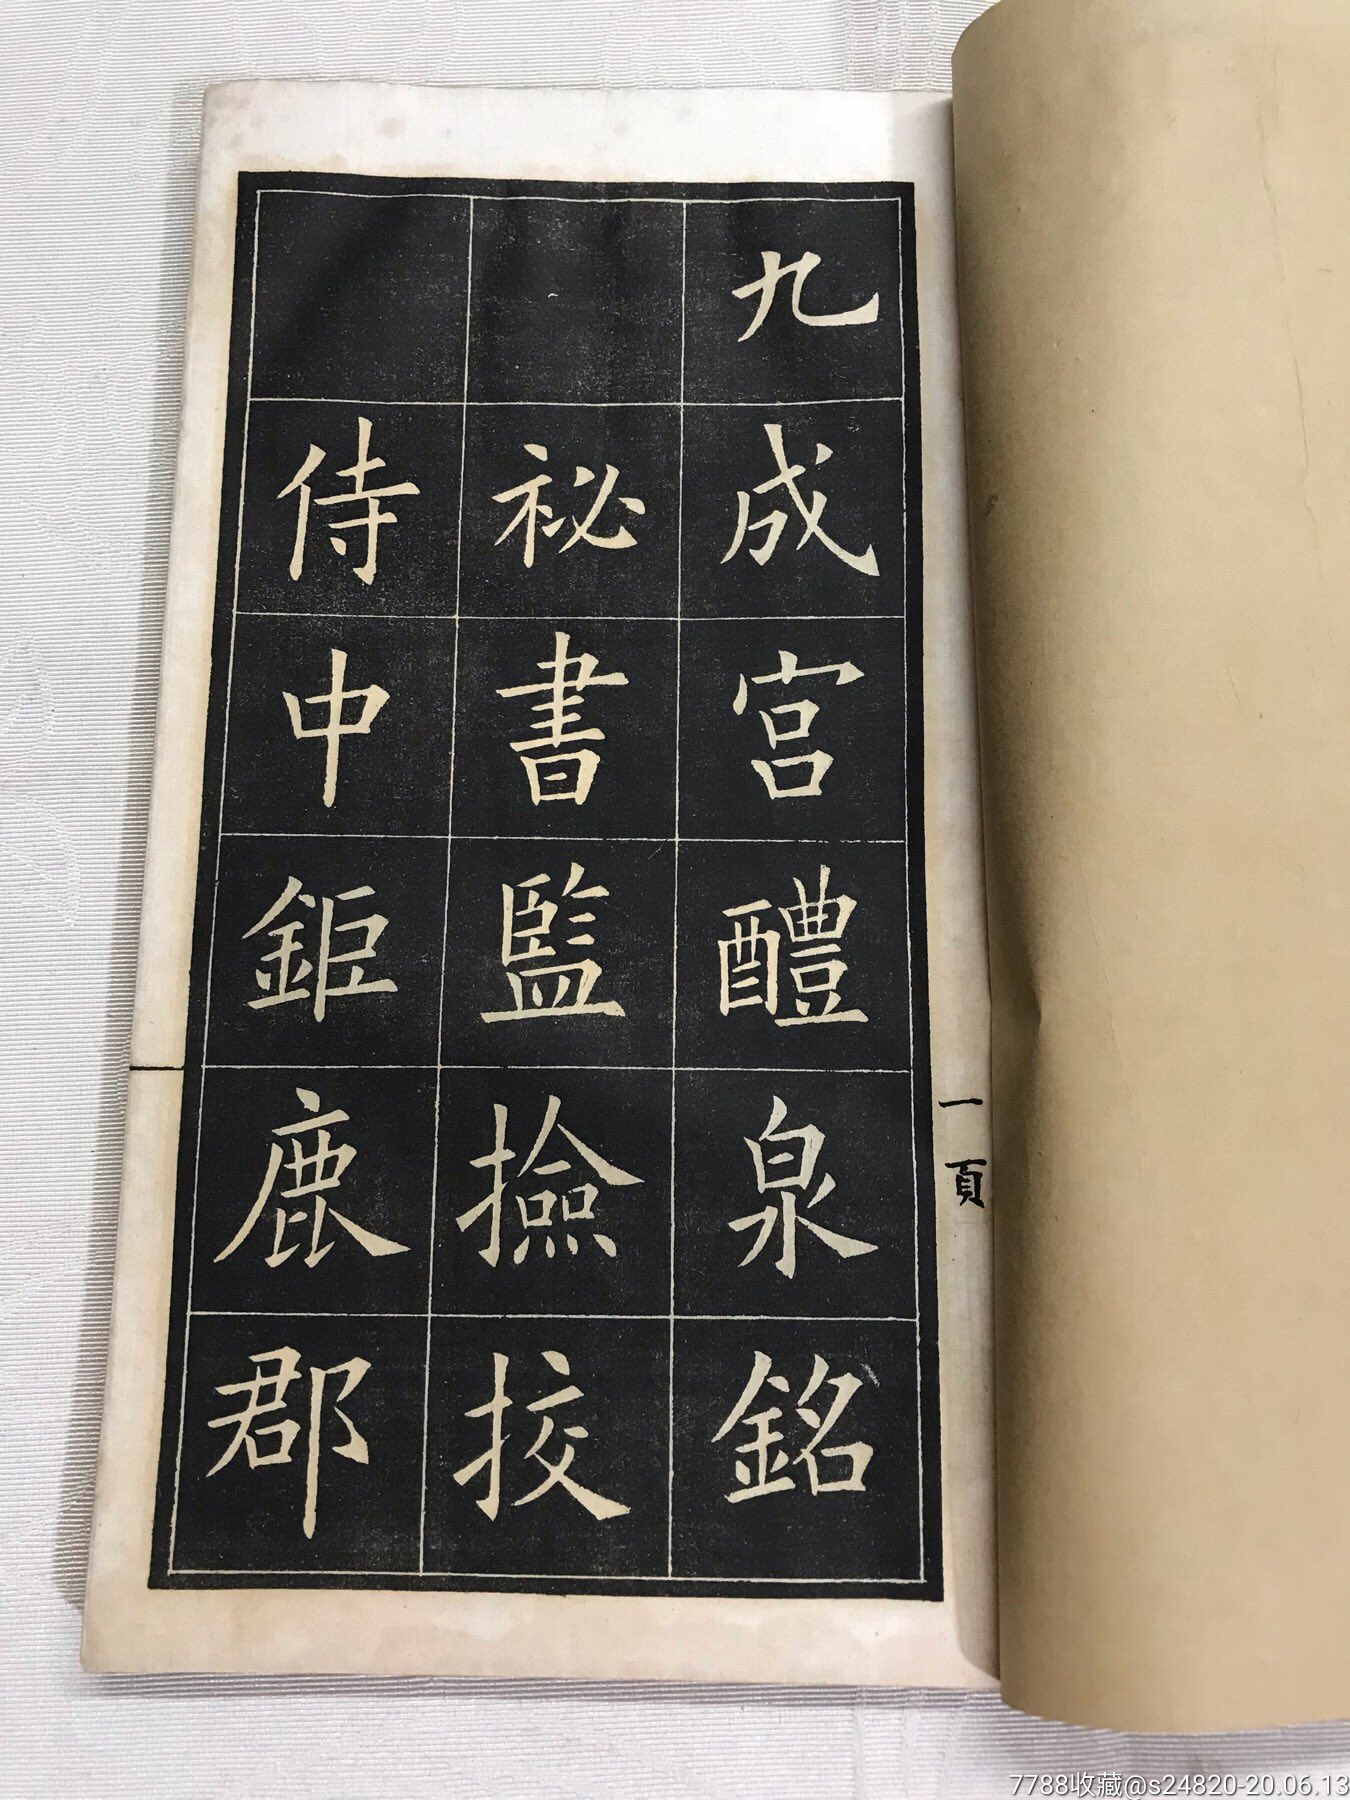 九成宮醴泉銘
祕書監撿挍
侍中鉅鹿郡
一頁
7788收藏@s24820-20.06.13